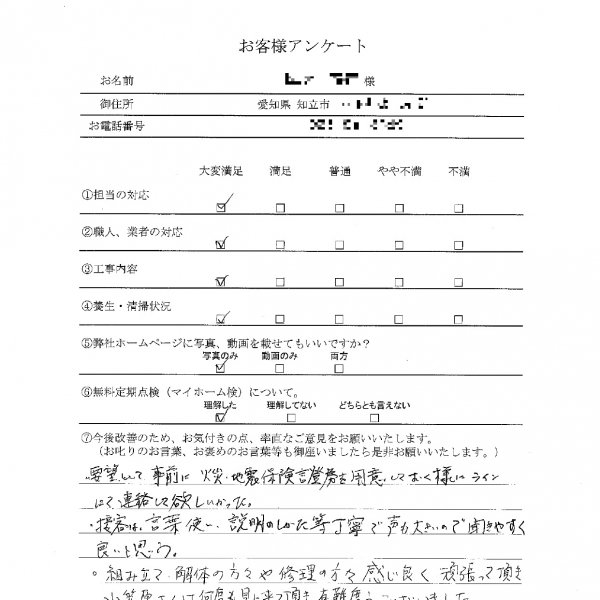 お客様アンケート
お名前 様
御住所 愛知県 知立市
お電話番号
大変満足 満足 普通 やや不満 不満
①担当の対応
②職人、業者の対応
③工事内容
④養生・清掃状況
⑤弊社ホームページに写真、動画を載せてもいいですか?
写真のみ 動画のみ 両方
⑥無料定期点検(マイホーム検)について。
理解した 理解してない どちらとも言えない
⑦今後改善のため、お気付きの点、率直なご意見をお願いいたします。
(お叱りのお言葉、お褒めのお言葉等も御座いましたら是非お願いします。)
要望として事前に火災・地震保険証券を用意しておく様にライン
にて連絡して欲しかった。
・接客は、言葉使い、説明のしかた等丁寧で声も大きいので聞きやすく
良いと思う。
。組み立て・解体の方々や修理の方々感じ良く頑張って頂き
さんは何度も見に来て頂き有難度うございました